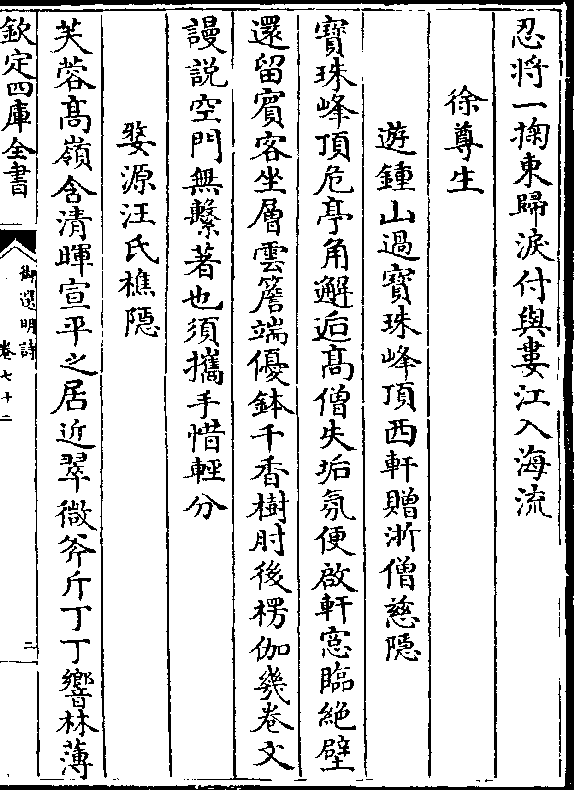 忍將一掬東歸淚付與婁江入海流
徐尊生
遊鍾山過寶珠峰頂西軒贈浙僧慈隠
寶珠峰頂危亭角邂逅髙僧失垢氛便啟軒窓臨絶壁
還留賔客坐層雲簷端優鉢千香樹肘後楞伽幾卷文
謾説空門無繫著也須攜手惜輕分
婺源汪氏樵隠
芙蓉髙嶺含清暉宣平之居近翠微斧斤丁丁響林薄
欽定四庫全書
御選明詩
卷七十二
二